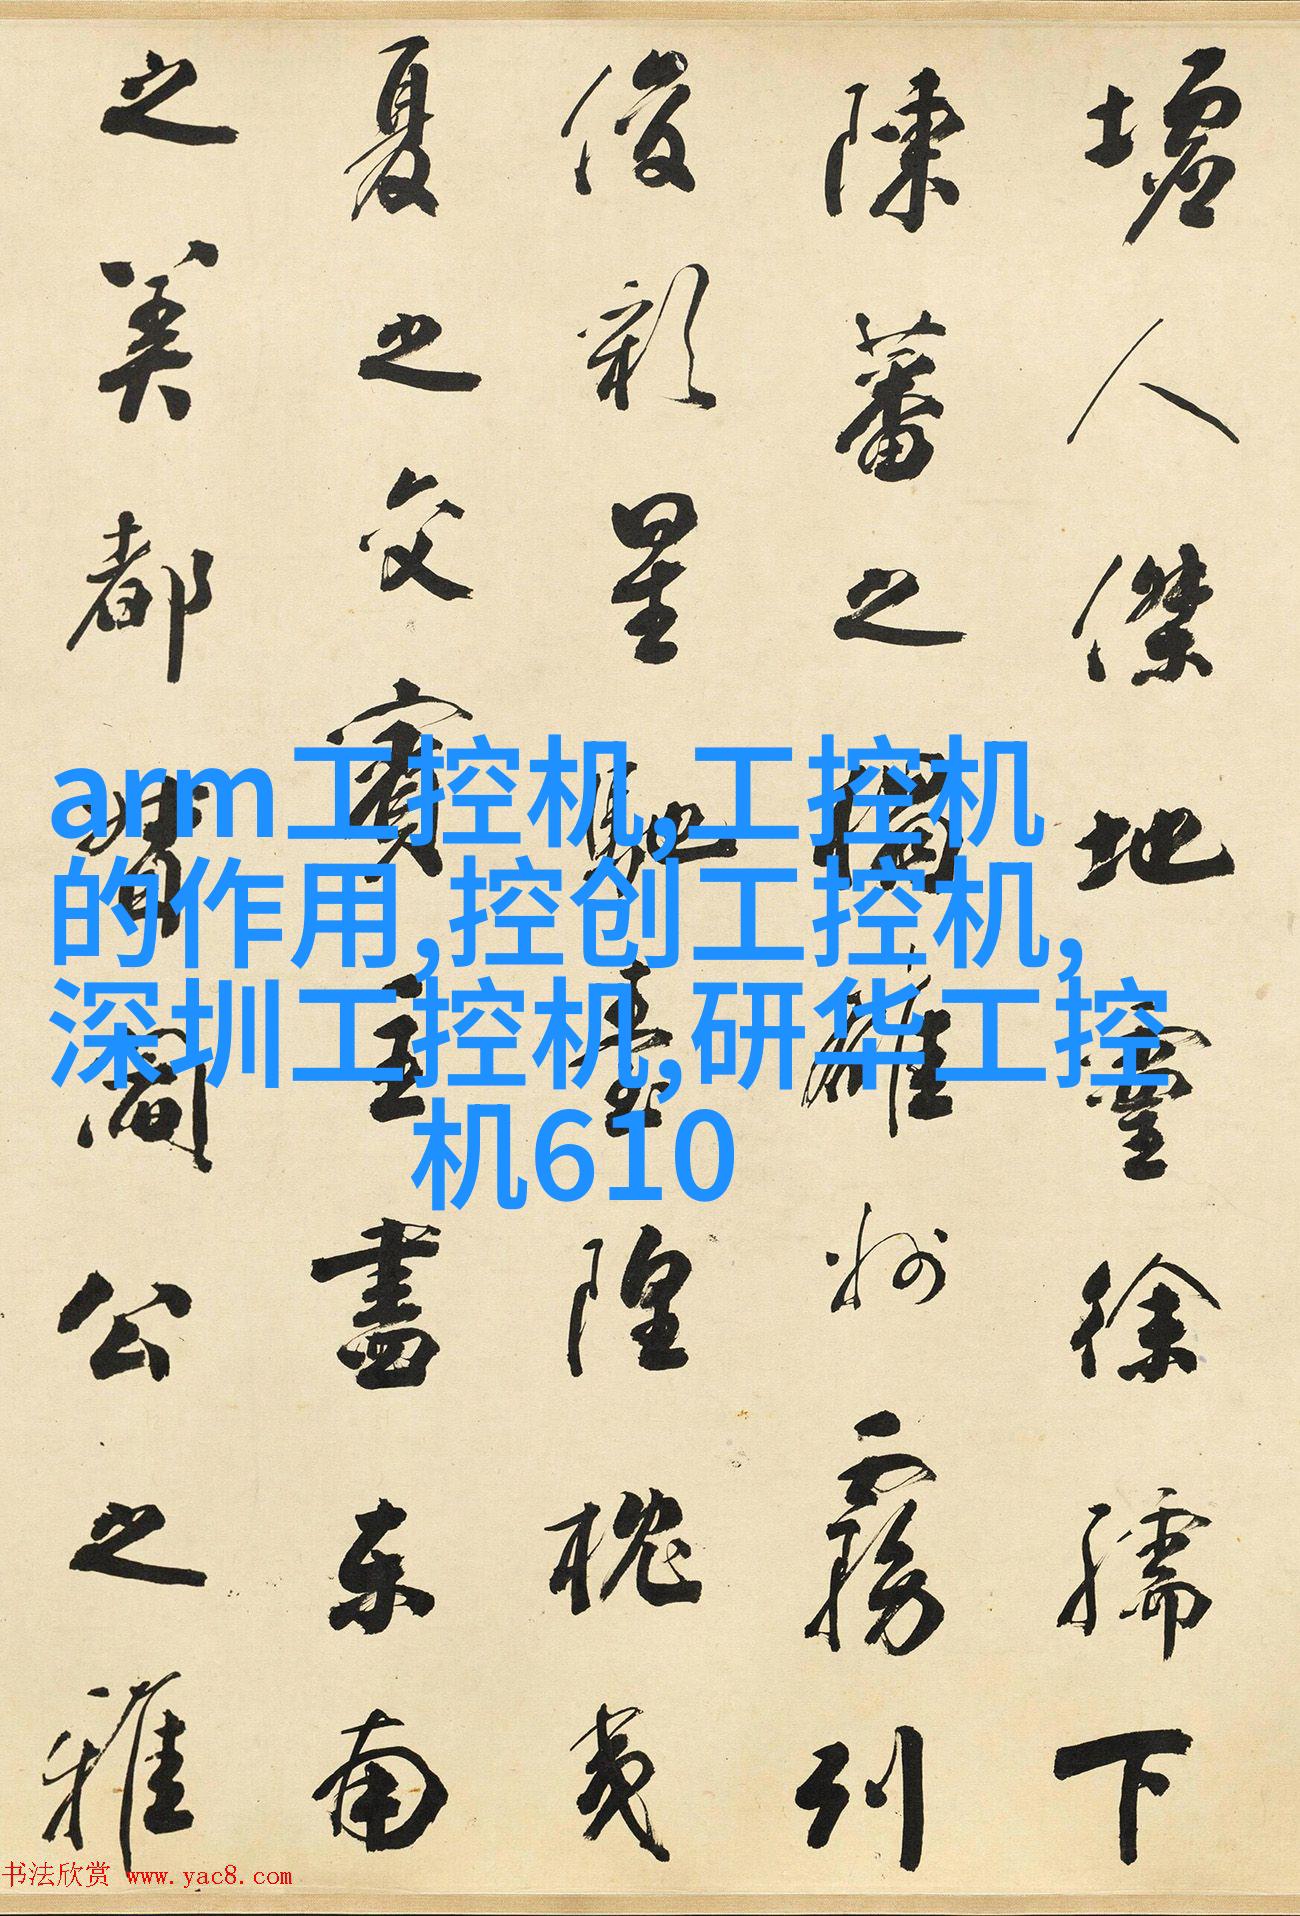 墟人傑地靈徐孺下
陳蕃之榻雄州霧列
俊彩星馳臺隍枕夷
夏之交賓主盡东南
之美都督閻公之雅
arm工控机,工控机
的作用,控创工控机,
深圳工控机,研华工控
机610
书法欣赏 www.yac8.com